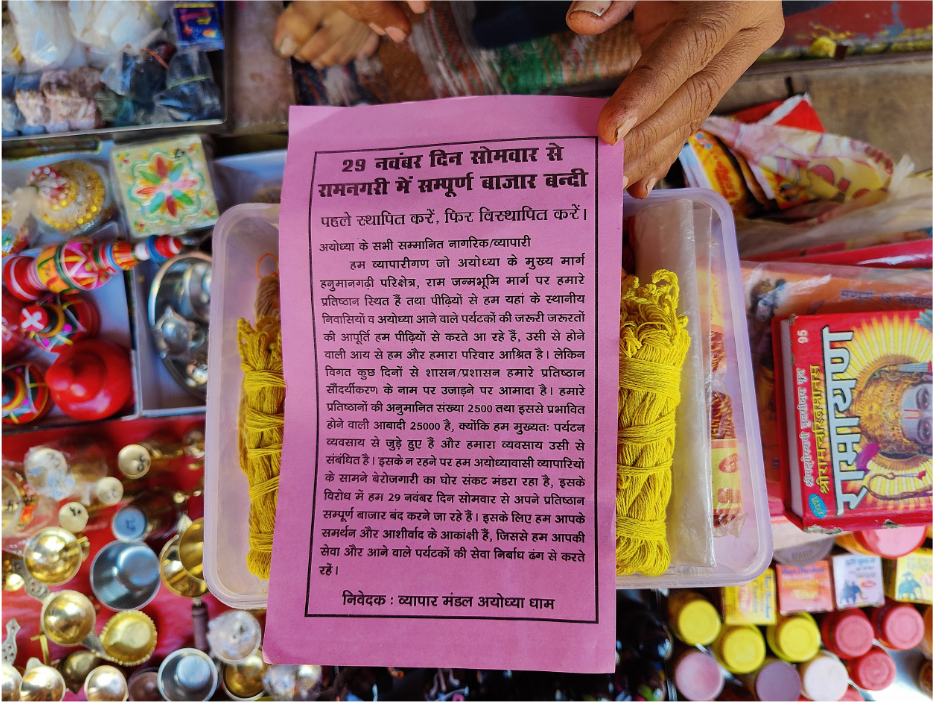 29 नवंबर दिन सोमवार से
रामनगरी में सम्पूर्ण बाजार बन्दी
पहले स्थापित करें, फिर विस्थापित करें।
अयोध्या के सभी सम्मानित नागरिक/व्यापारी
हम व्यापारीगण जो अयोध्या के मुख्य मार्ग
हनुमानगढ़ी परिक्षेत्र, राम जन्मभूमि मार्ग पर हमारे
प्रतिष्ठान स्थित हैं तथा पीढ़ियों से हम यहां के स्थानीय
निवासियों व अयोध्या आने वाले पर्यटकों की जरूरी जरूरतों
की आपूर्ति हम पीढ़ियों से करते आ रहे हैं, उसी से होने
वाली आय से हम और हमारा परिवार आश्रित है। लेकिन
विगत कुछ दिनों से शासन/प्रशासन हमारे प्रतिष्ठान
सौंदर्यीकरण के नाम पर उजाड़ने पर आमादा है। हमारे
प्रतिष्ठानों की अनुमानित संख्या 2500 तथा इससे प्रभावित
होने वाली आबादी 25000 है, क्योंकि हम मुख्यतः पर्यटन
व्यवसाय से जुड़े हुए हैं और हमारा व्यवसाय उसी से
संबंधित है। इसके न रहने पर हम अयोध्यावासी व्यापारियों
के सामने बेरोजगारी का घोर संकट मंडरा रहा है, इसके
विरोध में हम 29 नवंबर दिन सोमवार से अपने प्रतिष्ठान
सम्पूर्ण बाजार बंद करने जा रहे हैं। इसके लिए हम आपके
समर्थन और आशीर्वाद के आकांक्षी हैं, जिससे हम आपकी
सेवा और आने वाले पर्यटकों की सेवा निर्बाध ढंग से करते
रहें।
निवेदक : व्यापार मंडल अयोध्या धाम
95
रामायण